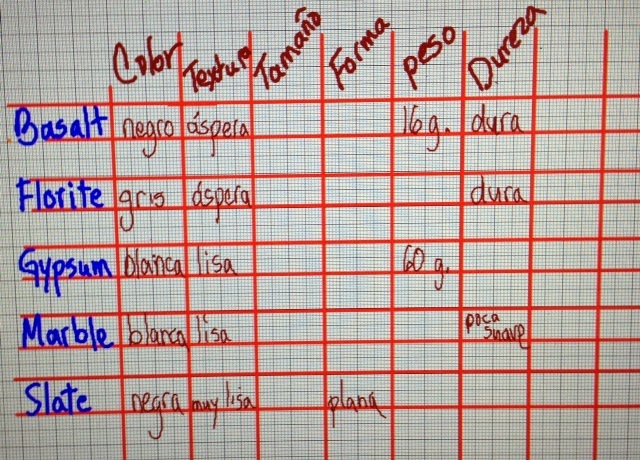 Color Textura Tamaño Forma peso Dureza
Basalt negro áspera 16 g. dura
Florite gris áspera dura
Gypsum blanca lisa 60 g.
Marble blanca lisa poca suave
Slate negra muy lisa plana